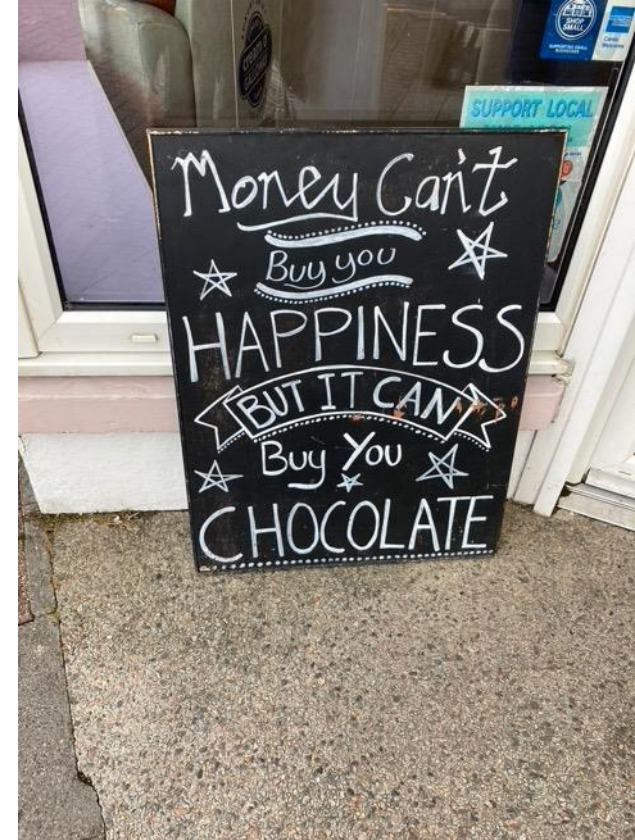 SHOP
SMALL
SUPPORT LOCAL
Money Can't
Buy you
HAPPINESS
BUT IT CAN
Buy You
CHOCOLATE